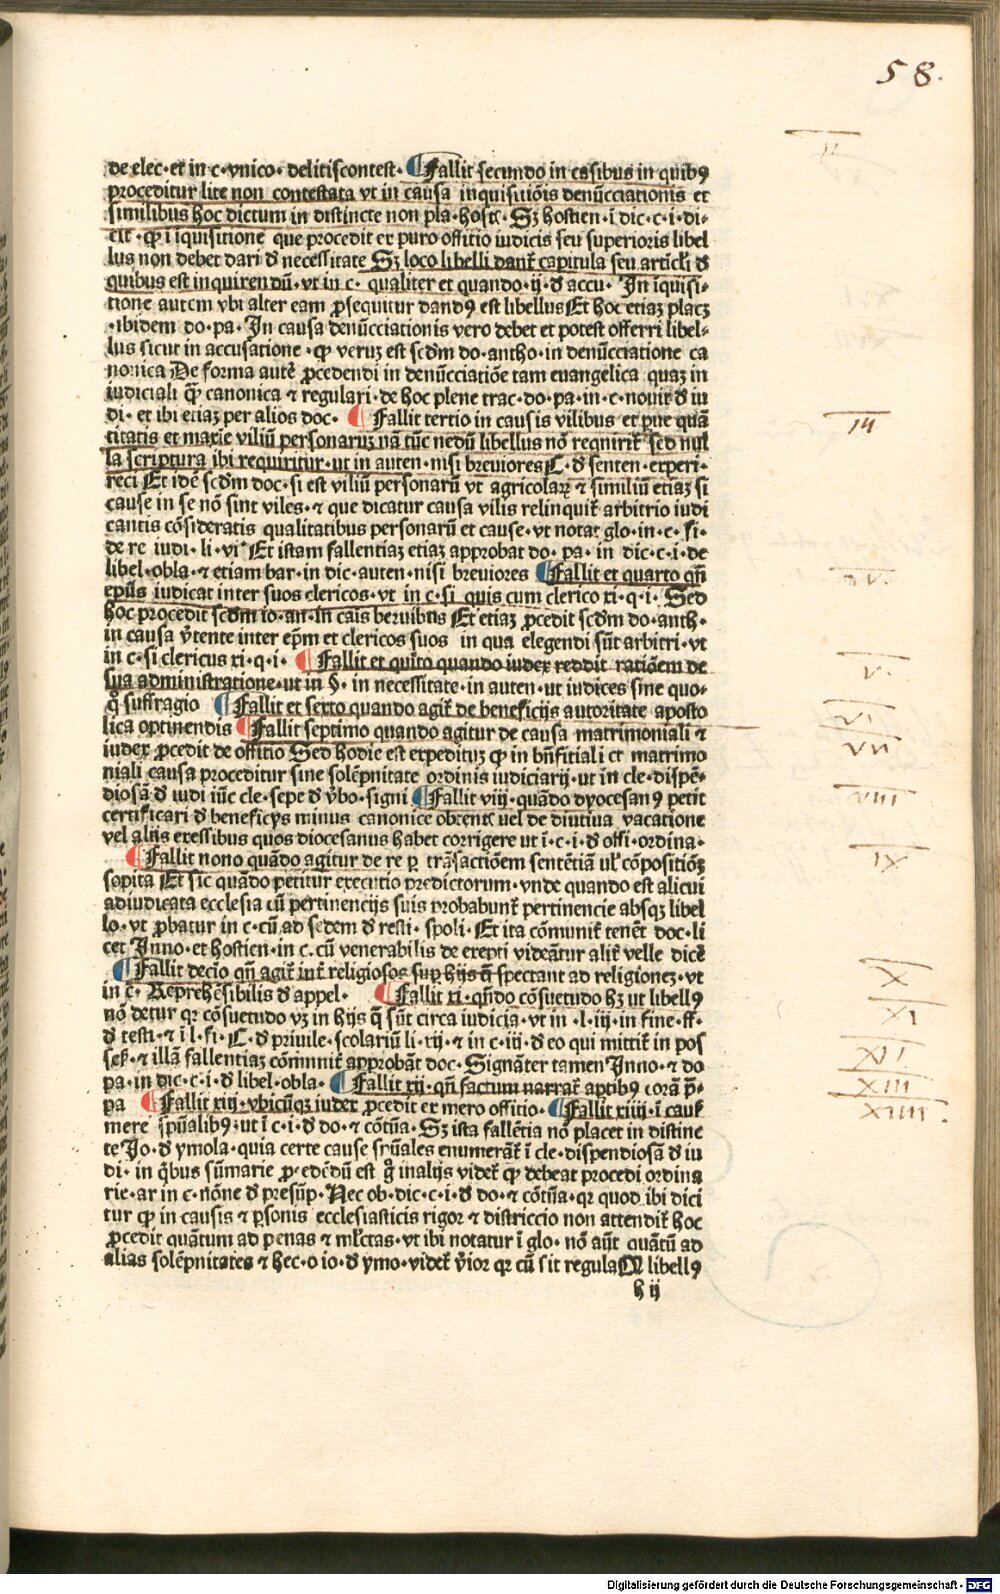 58.
de elec·et in c·vnico·delitiscontest·¶Fallit secundo in casibus in quibꝯ
proceditur lite non contestata vt in causa inquisitiõis denũcciationis et
similibus hoc dictum in distincte non pla·hostĩ·Sz hostien·ĩ dic·c·i·di-
cit·ꝙ ĩ iquisitione que procedit ex puro offitio iudicis seu superioris libel
lus non debet dari đ necessitate Sz loco libelli dant̃ capitula seu articĺi đ
quibus est inquirendũ·vt in c·qualiter et quando·ij·đ accu·In ĩquisi-
tione autem vbi alter eam ꝓsequitur dandꝯ est libellus Et hoc etiaz placz
·ibidem do·pa·In causa denũcciationis vero debet et potest offerri libel-
lus sicut in accusatione·ꝙ veruz est scđm do·antho·in denũcciatione ca
nonica De forma autẽ ꝓcedendi in denũcciatiõe tam euangelica quaz in
iudiciali ꝙ̃ canonica ⁊ regulari·de hoc plene trac·do·pa·in·c·nouit đ iu
di·et ibi etiaz per alios doc·¶Fallit tertio in causis vilibus et ꝑue quã
titatis et maxie viliũ personaruz nã tũc nedũ libellus nõ requirit̃ sed nul
la scriptura ibi requiritur·ut in auten·nisi breuiores C·đ senten·experi·
reci Et idẽ scđm doc·si est viliũ personarũ vt agricolaꝝ ⁊ similiũ etiaz si
cause in se nõ sint viles·⁊ que dicatur causa vilis relinquit̃ arbitrio iudi
cantis cõsideratis qualitatibus personarũ et cause·vt notat glo·in·c·fi·
de re iudi·li·vi° Et istam fallentiaz etiaz approbat do·pa·in dic·c·i·de
libel·obla·⁊ etiam bar·in dic·auten·nisi breuiores ¶Fallit et quarto qñ
ep̃us iudicat inter suos clericos·vt in c·si quis cum clerico xi·q·i·Sed
hoc procedit scđm io·an·in cãis breuibus Et etiaz ꝓcedit scđm do·anth·
in causa ṽtente inter ep̃m et clericos suos in qua elegendi sũt arbitri·vt
in c·si clericus xi·q·i·¶Fallit et quĩto quando iudex reddit ratiõem de
sua administratione·ut in §·in necessitate·in auten·ut iudices sine quo-
q̊ suffragio ¶Fallit et sexto quando agit̃ de beneficijs autoritate aposto
lica optinendis ¶Fallit septimo quando agitur de causa matrimoniali ⁊
iudex ꝓcedit de offitio Sed hodie est expedituz ꝙ in bñfitiali et matrimo
niali causa proceditur sine solẽpnitate ordinis iudiciarij·ut in cle·dispẽ-
diosã đ iudi iũc cle·sepe đ ṽbo·signi ¶Fallit viij·quãdo dyocesanꝯ petit
certificari đ beneficys minus canonice obtent̃ uel de diutiua vacatione
vel aliis exessibus quos diocesanus habet corrigere ut ĩ·c·i·đ offi·ordina·
¶Fallit nono quãdo agitur de re ꝑ trãsactiõem sentẽtiã ul̃ cõpositiõz
sopita Et sic quãdo petitur executio predictorum·vnde quando est alicui
adiudicata ecclesia cũ pertinencijs suis probabunt̃ pertinencie absqz libel
lo·vt ꝓbatur in c·cũ ad sedem đ resti·spoli·Et ita cõmunit̃ tenẽt doc·li
cet Inno·et hostien·in c·cũ venerabilis de exepti videãtur alit̃ velle dicẽ
¶Fallit decio qñ agit̃ int̃ religiosos suꝑ hijs q̃ spectant ad religionez·vt
in c̃·Reprehẽsibilis đ appel·¶Fallit xi·qñdo cõsuetudo hz ut libellꝯ
nõ detur qr cõsuetudo vz in hijs q̃ sũt circa iudicia·vt in·l·iij·in fine·ff·
đ testi·⁊ ĩ l·fi·C·đ priuile·scolariũ li·xij·⁊ in c·iij·đ eo qui mittit̃ in pos
ses̃·⁊ illã fallentiaz cõmunit̃ approbãt doc·Signãter tamen Inno·⁊ do
pa·in dic·c·i·đ libel·obla·¶Fallit xij·qñ factum narrat̃ aptibꝯ corã p̃-
pa ¶Fallit xiij·vbicũqz iudex ꝓcedit ex mero offitio·¶Fallit xiiij·ĩ caus̃
mere sp̃ualibꝯ·ut ĩ c·i·đ do·⁊ cõtũa·Sz ista fallẽtia nõ placet in distinc
te Jo·đ ymola·quia certe cause sp̃uales enumerãt̃ ĩ cle·dispendiosã đ iu
di·in q̃bus sũmarie ꝓcedẽdũ est g̊ in alijs videt̃ ꝙ debeat procedi ordina
rie·ar in c·nõne đ presũp·Nec ob·dic·c·i·đ do·⁊ cõtũa·qr quod ibi dici
tur ꝙ in causis ⁊ ꝑsonis ecclesiasticis rigor ⁊ districcio non attendit̃ hoc
ꝓcedit quãtum ad penas ⁊ ml̃ctas·vt ibi notatur ĩ glo·nõ aũt quãtũ ad
alias solẽpnitates ⁊ hec·o io·đ ymo·videt̃ ṽior qr cũ sit regula Q̃ libellꝯ
h ij
II
III
IV.
V.
VI
VII
VIII
XI
X
XI
XII
XIII
XIIII.
Digitalisierung gefördert durch die Deutsche Forschungsgemeinschaft - DFG